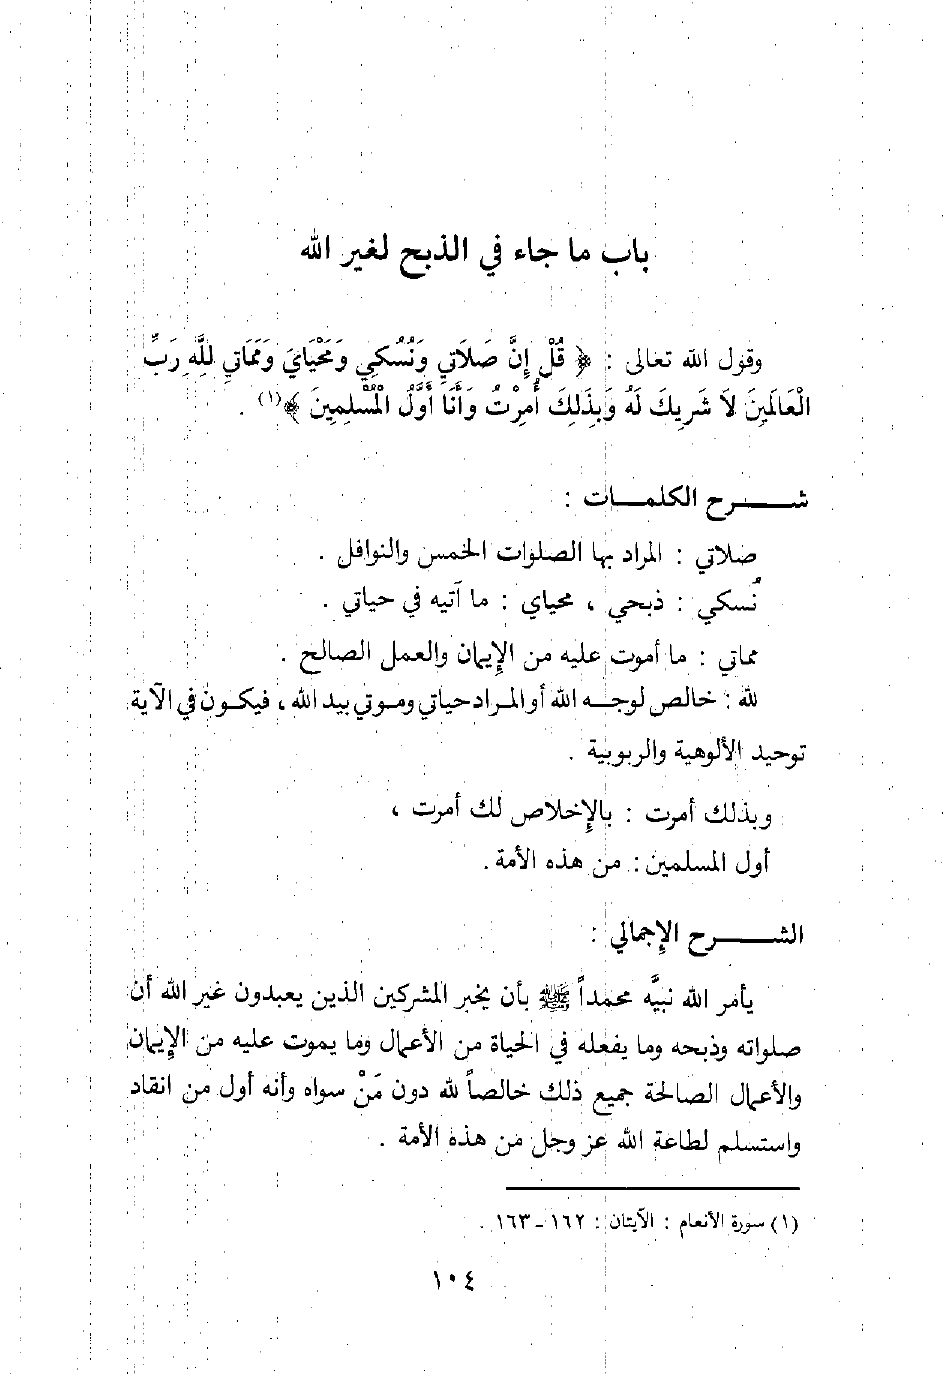 باب ما جاء في الذبح لغير الله
وقول الله تعالى : ﴿ قُلْ إِنَّ صَلاَتِي وَنُسُكِي وَمَحْيَايَ وَمَمَاتِي لِلَّهِ رَبِّ
الْعَالَمِينَ لاَ شَرِيكَ لَهُ وَبِذَلِكَ أُمِرْتُ وَأَنَا أَوَّلُ الْمُسْلِمِينَ ﴾(١) .
شــرح الكلمــات :
صلاتي : المراد بها الصلوات الخمس والنوافل .
نُسكي : ذبحي ، محياي : ما آتيه في حياتي .
مماتي : ما أموت عليه من الإيمان والعمل الصالح .
لله : خالص لوجــه الله أو المـراد حياتي ومـوتي بيد الله ، فيكـون في الآية
توحيد الألوهية والربوبية .
وبذلك أمرت : بالإخلاص لك أمرت ،
أول المسلمين : من هذه الأمة .
الشــرح الإجمالي :
يأمر الله نبيَّه محمداً ﷺ بأن يخبر المشركين الذين يعبدون غير الله أن
صلواته وذبحه وما يفعله في الحياة من الأعمال وما يموت عليه من الإيمان
والأعمال الصالحة جميع ذلك خالصاً لله دون مَنْ سواه وأنه أول من انقاد
واستسلم لطاعة الله عز وجل من هذه الأمة .
(١) سورة الأنعام : الآيتان : ١٦٢ - ١٦٣ .
١٠٤